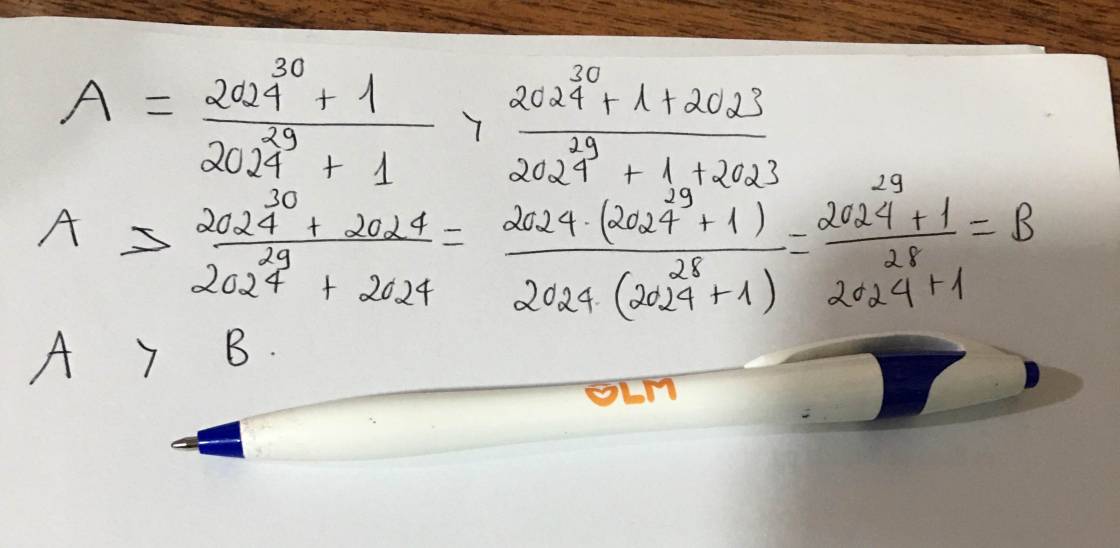 A = (2024^30 + 1)/(2024^29 + 1) > (2024^30 + 1 + 2023)/(2024^29 + 1 + 2023)
A > (2024^30 + 2024)/(2024^29 + 2024) = (2024.(2024^29 + 1))/(2024.(2024^28 + 1)) = (2024^29 + 1)/(2024^28 + 1) = B
A > B.
OLM